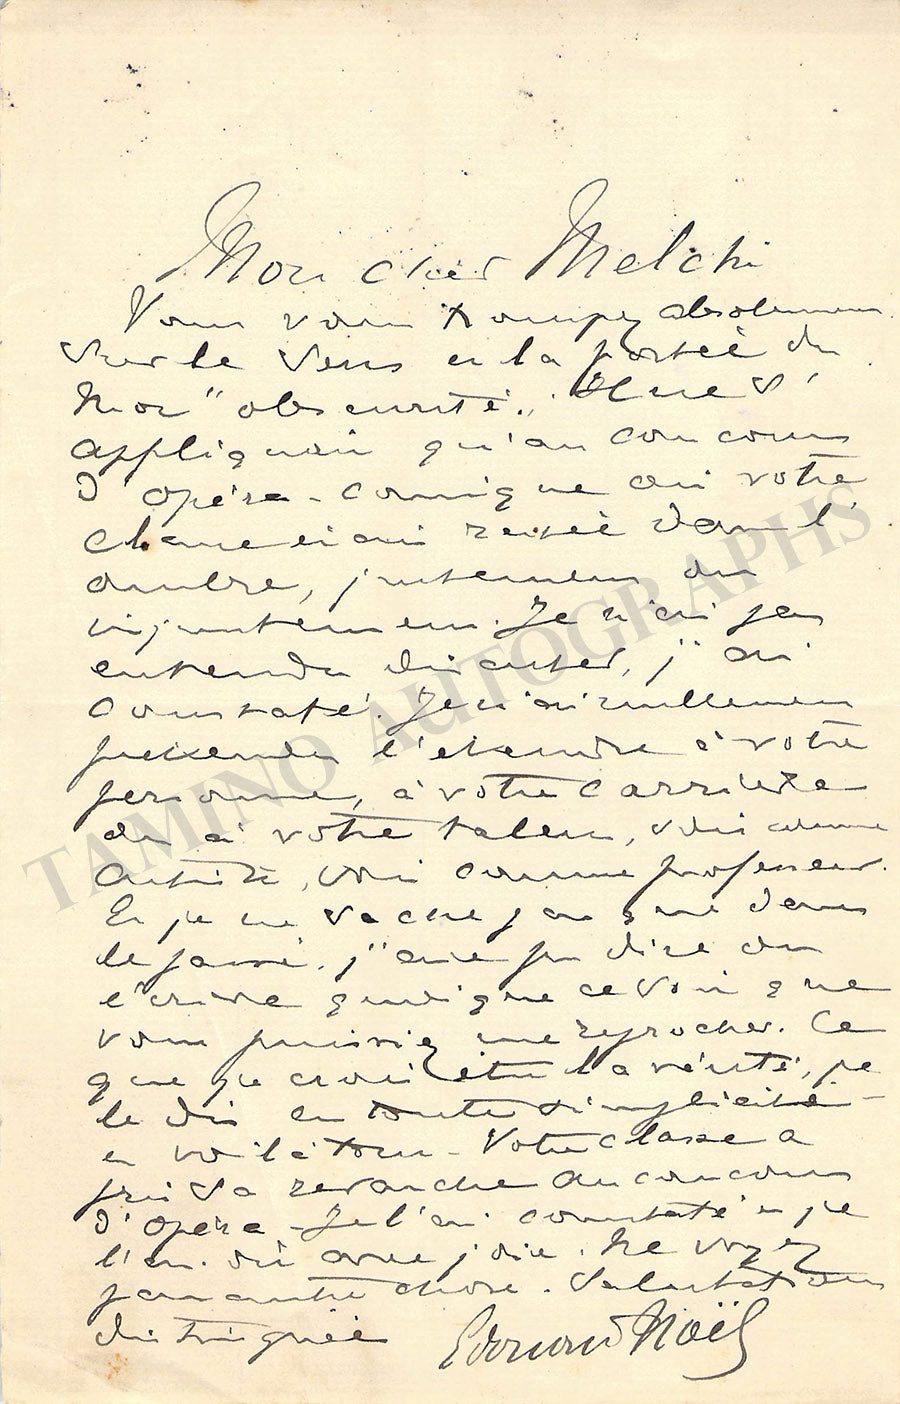 Mon cher Melchi
Vous vous trompez absolument
sur le sens et la portée du
mot "obscurité". Il ne s'
appliquait qu'au concours
d'opéra-comique où votre
classe était restée dans l'
ombre, justement ou
injustement. Je n'ai pas
entendu discuter, j'ai
constaté. Je n'ai nullement
prétendu l'étendre à votre
personne, à votre carrière
ou à votre talent, soit comme
artiste, soit comme professeur.
Et je ne sache pas que dans
le passé j'aie pu dire ou
écrire quoique ce soit que
vous puissiez me reprocher. Ce
que je crois être la vérité, je
le dis en toute simplicité -
et voilà tout - Votre classe a
pris sa revanche au concours
d'opéra - Je l'ai constaté et je
l'ai dit avec joie. Ne voyez
pas autre chose. Salutations
distinguées
Edouard Noël
TAMINO AUTOGRAPHS